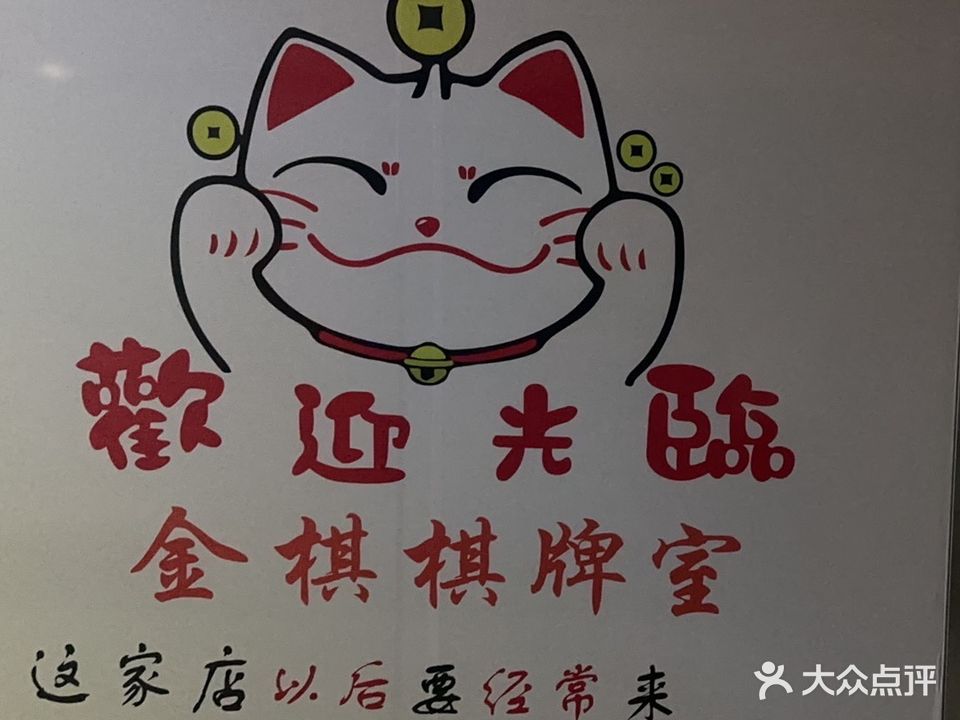 歡迎光臨
金棋棋牌室
这家店以后要经常来
大众点评